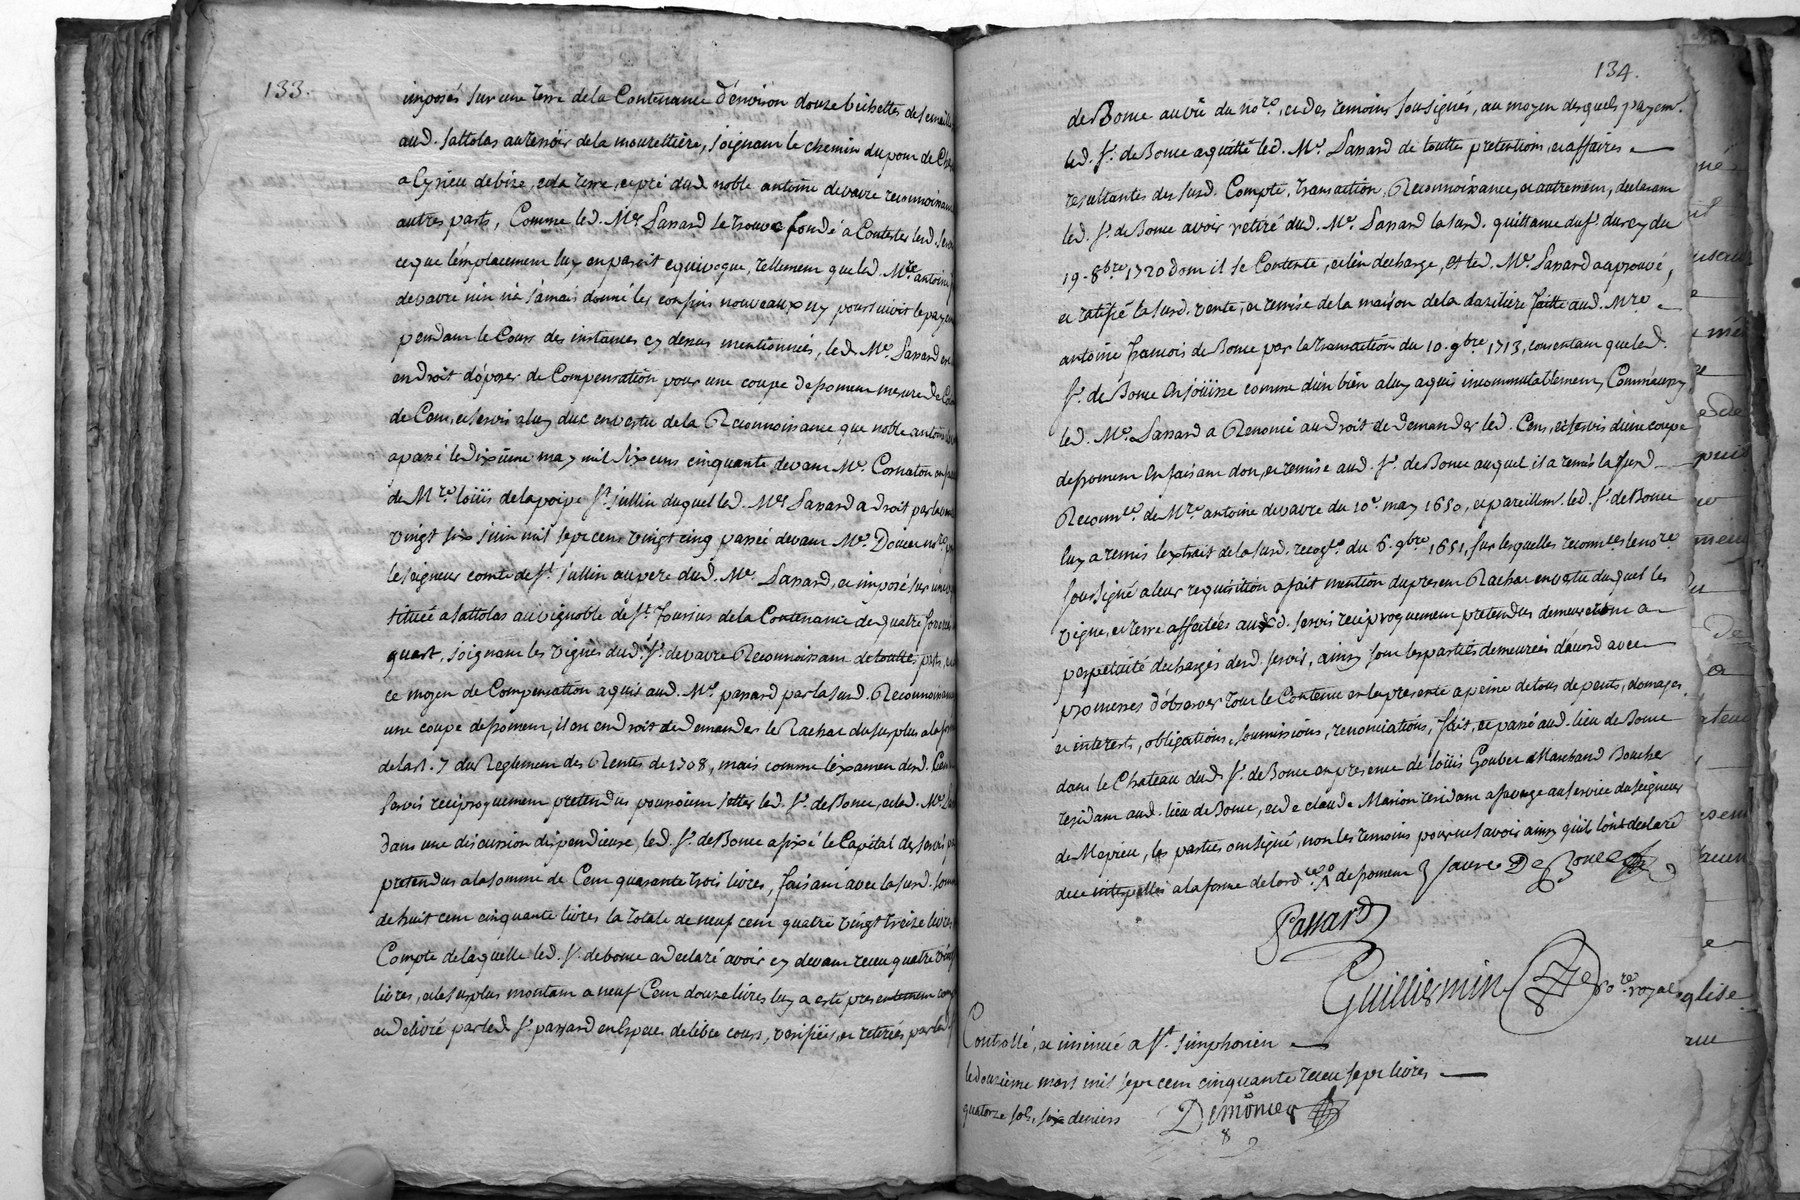 133.
imposés sur une terre de la Contenance d'environ douze bichettes de semaille
aud. sattolas au terroir de la mourettiere, joignant le chemin du pont de
a Cyrieu de bize, et la terre, et pré dud noble antoine devavre reconnoissant
autres parts, Comme led. Me. Passard se trouve fondé à Contester led. servi
ce que l'emplacement luy en paroit equivoque, tellement que led. Mre antoine
devavre n'en n'a jamais donné les confins nouveaux ny poursuivit le payem
pendant le Cours des instances cy dessus mentionnées, led Me. Passard est
en droit d'oposer de Compensation pour une coupe de froment mesure de
de Cens, et servi a luy duc en vertu de la Reconnoissance que noble antoine
a passé le dixième may mil six cens cinquante devant Me. Cornaton en
de Mre loüis de la poipe st. jullin duquel led. Me Passard a droit par
vingt six juin mil sept cens vingt cinq passée devant Me. Doucet nore.
le seigneur comte de st. jullin au pere dud. Me. Passard, et imposé sur une
sittüée a sattolas au vignoble de st. de la Contenance de quatre
quart, joignant les vignes dud. sr. devavre Reconnoissant de touttes parts,
ce moyen de Compensation aquis aud. Me. passard par la susd. Reconnoissance
une coupe de froment, il a en droit de demander le Rachat du surplus a la forme
de l'art. 7 du Reglement des Rentes de 1708, mais comme l'examen desd. Cens
servis reciproquement pretendus pourroient jetter led. sr. de Bouce, et led. Me.
dans une discussion dispendieuse, led. sr. de Bouce a fixé le Capital des servis
pretendus a la somme de Cent quarante trois livres, faisant avec la susd. somme
de huit cent cinquante livres la totale de neuf cent quatre vingt treize livres,
Compte de laquelle led. sr. de bouce a declaré avoir cy devant receu quatre vingt
livres, et le surplus montant a neuf Cent douze livres luy a esté presentement
et delivré par led sr. passard en Espèces de libre cours, verifiées, et retirées par led
134.
de Bouce au vû du nore., et des temoins soussignés, au moyen desquels payemt.
led. sr. de Bouce a quitté led. Me. Passard de touttes pretentions, et affaires
resultantes des susd. Compte, transaction, Reconnoissance, et autrement, declarant
led. sr. de Bouce avoir retiré dud. Me. Passard la susd. quittance du sr. du
19. 8bre 1720 dont il se Contente, et l'en decharge, et led. Me. Passard a aprouvé,
et ratifié la susd. vente, et remise de la maison de la daziliere faitte aud. Mre
antoine francois de Bouce par la transaction du 10. 9bre 1713, consentant que led.
sr. de Bouce En joüisse comme d'un bien a luy aquis incommutablement, Comme aussy
led. Me. Passard a Renoncé au droit de demander led. Cens, et servis d'une coupe
de froment En faisant don, et remise aud. sr. de Bouce auquel il a remis la susd.
Reconnce. de Mre antoine devavre du 10e. may 1650, et pareillemt. led. sr. de Bouce
luy a remis l'extrait de la susd. recogce. du 6. 9bre 1651, sur lesquelles reconnces le nore
soussigné a leur requisition a fait mention du present Rachat en vertu duquel les
vigne, et terre affectées auxd. servis reciproquement pretendus demeureront a
perpetuité dechargés desd. servis, ainsy sont les parties demeurées d'acord avec
promesses d'observer tout le Contenu en la presente a peine de tous depents, domages
et interests, obligations, soumissions, renonciations, fait, et passé aud. lieu de Bouce
dans le Chateau dud sr. de Bouce en presence de loüis Goubet Marchand Boucher
residant aud. lieu de Bouce, et de claude Marion residant a au service du seigneur
de Mepieu, les parties ont signé, non les temoins pour ne savoir ainsy qu'ils l'ont declaré
de ce interpellés a la forme de l'ordce. de froment
De Bouce
Passard
Guilliermin nore. royal
Controllé, et insinué a st. simphorien
le douzième mars mil sept cent cinquante receu sept livres
quatorze sols, six deniers Demônier